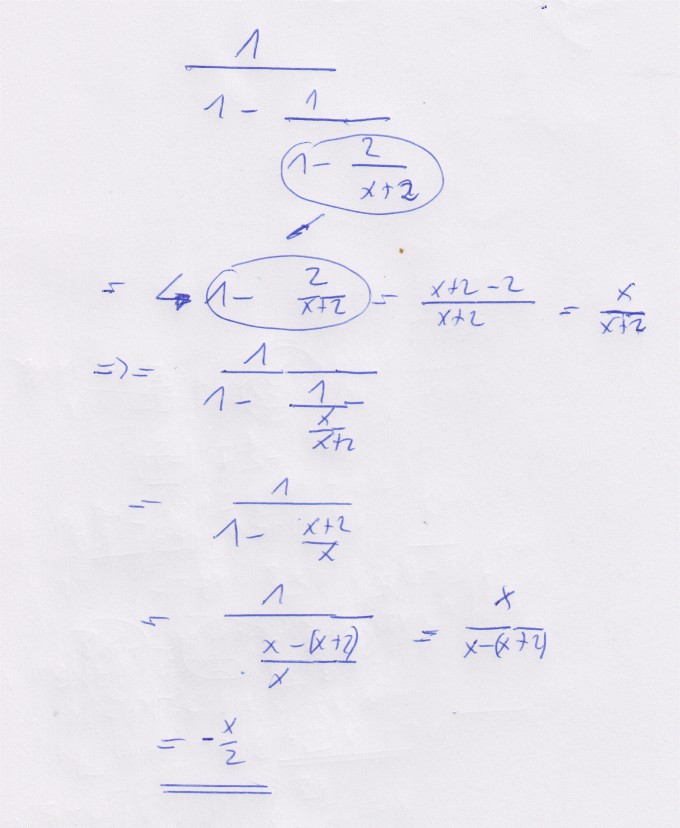 1
1 - 1
1 - 2
x+2
= ↳ 1 - 2/(x+2) = (x+2-2)/(x+2) = x/(x+2)
=> = 1/(1 - 1/(x/(x+2)))
= 1/(1 - (x+2)/x)
= 1/((x-(x+2))/x) = x/(x-(x+2))
= -x/2